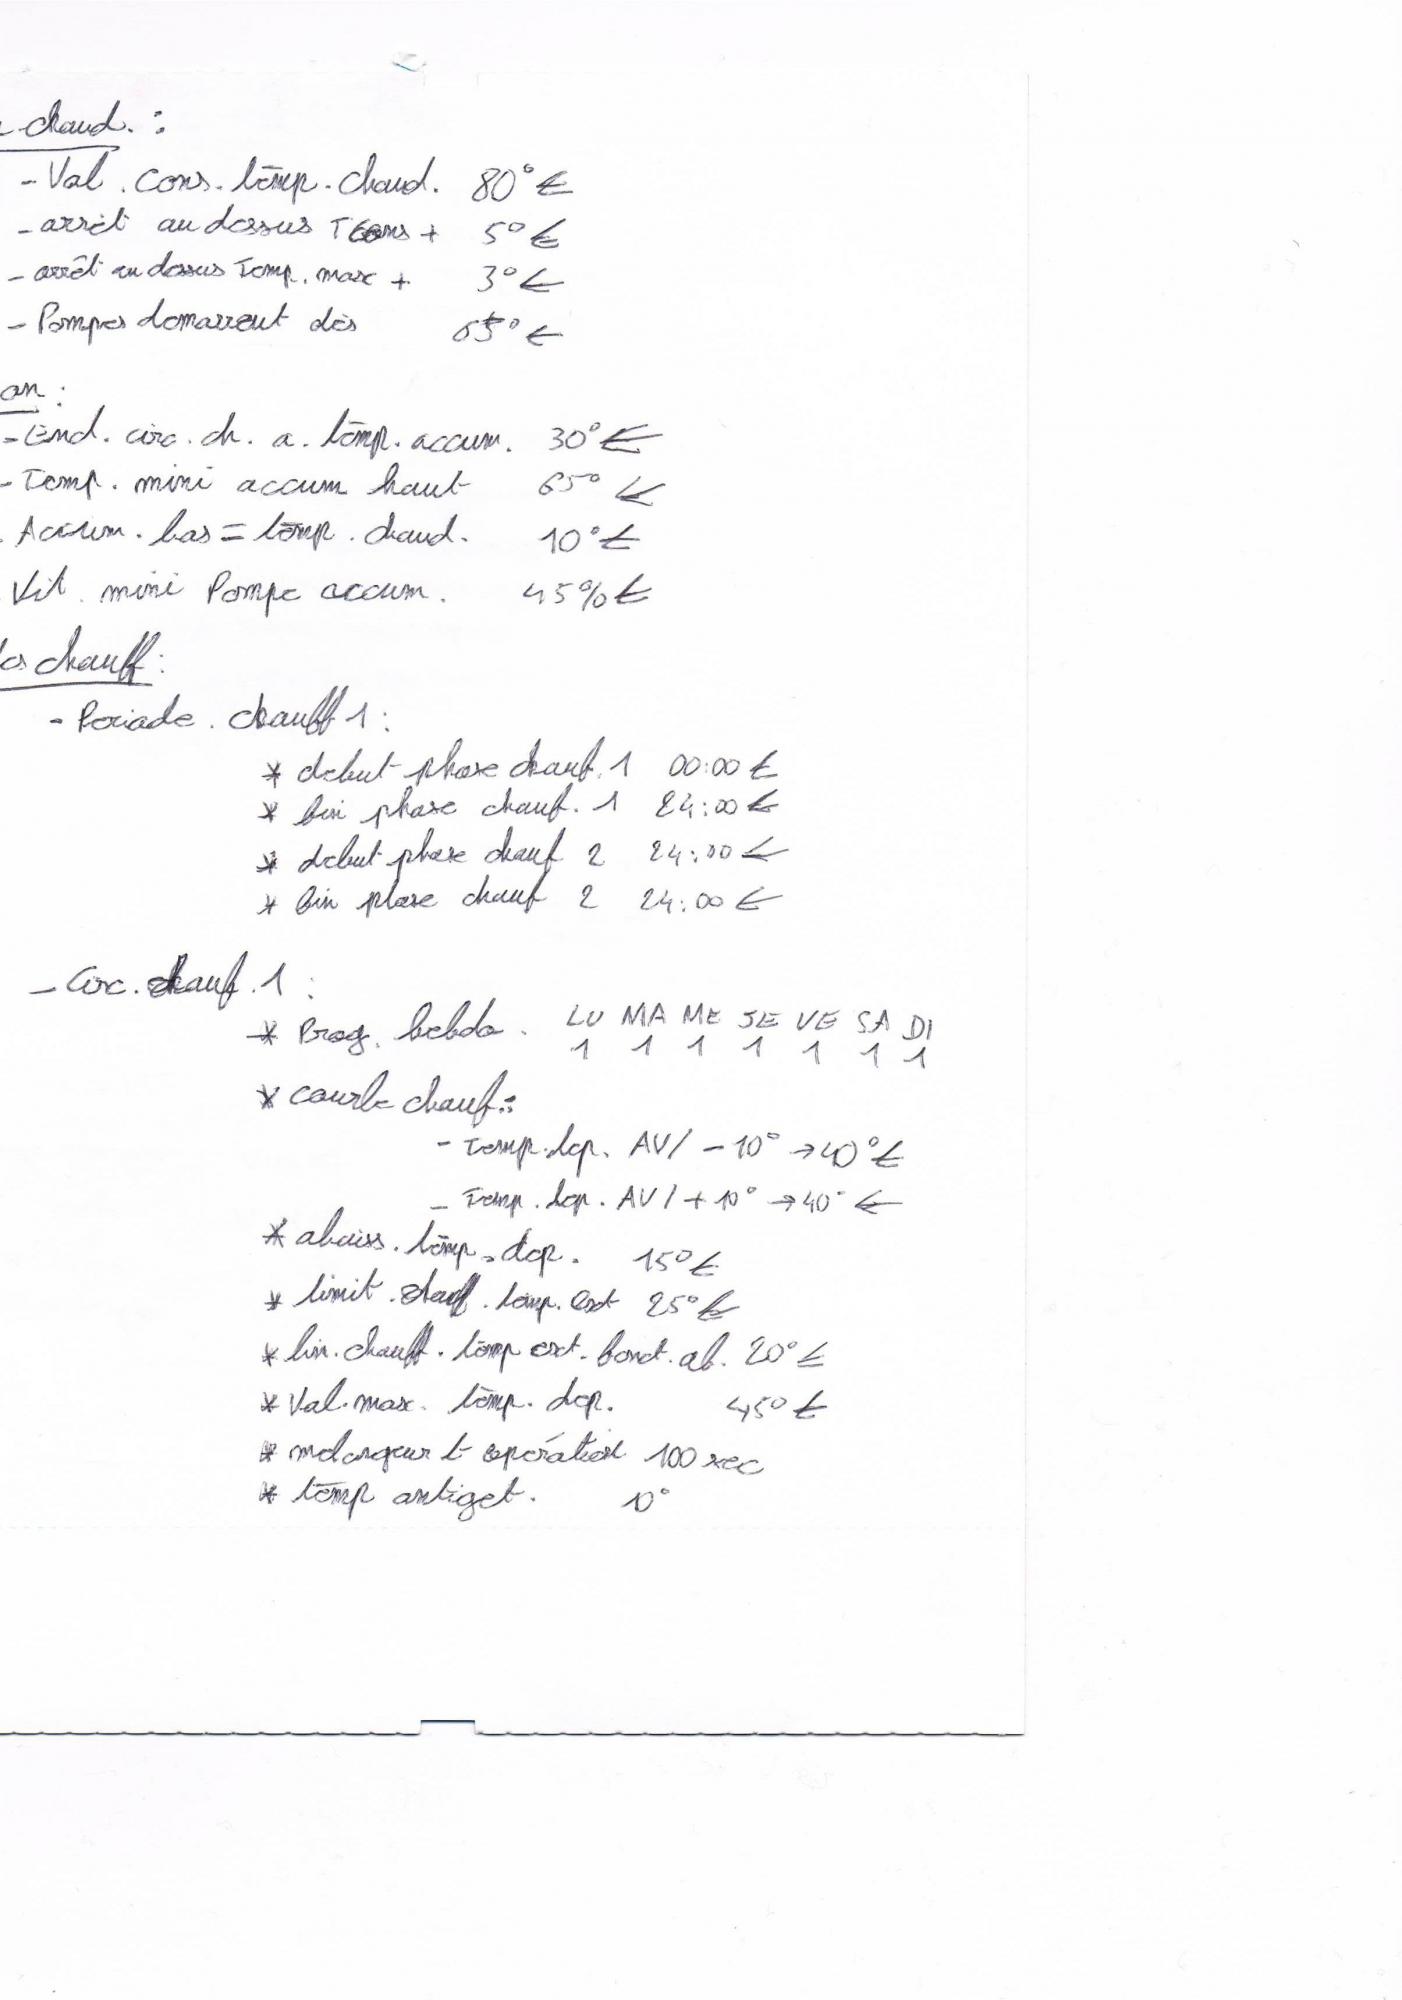 chaud. :
- Val. cons. temp. chaud. 80° ←
- arrêt au dessus T Cons + 5° ←
- arrêt au dessus Temp. max + 3° ←
- Pompes demarrent dès 65° ←
on :
- End. circ. ch. a. temp. accum. 30° ←
- Temp. mini accum haut 65° ←
. Accum. bas = temp. chaud. 10° ←
Vit. mini Pompe accum. 45% ←
chauff :
- Periade. chauff 1 :
* debut phase chauf. 1 00:00 ←
* fin phase chauf. 1 24:00 ←
* debut phase chauf 2 24:00 ←
* fin phase chauf 2 24:00 ←
- Circ. chauf. 1 :
* Prog. hebdo. LU MA ME JE VE SA DI
1 1 1 1 1 1 1
* courbe chauf. :
- Temp. dep. AV/ - 10° → 40° ←
- Temp. dep. AV/ + 10° → 40° ←
* abaiss. temp. dep. 15° ←
* limit. chauff. temp. ext 25° ←
* lim. chauff. temp ext. fonct. ab. 20° ←
* Val. max. temp. dep. 45° ←
* melangeur t opération 100 sec
* temp antigel. 10°